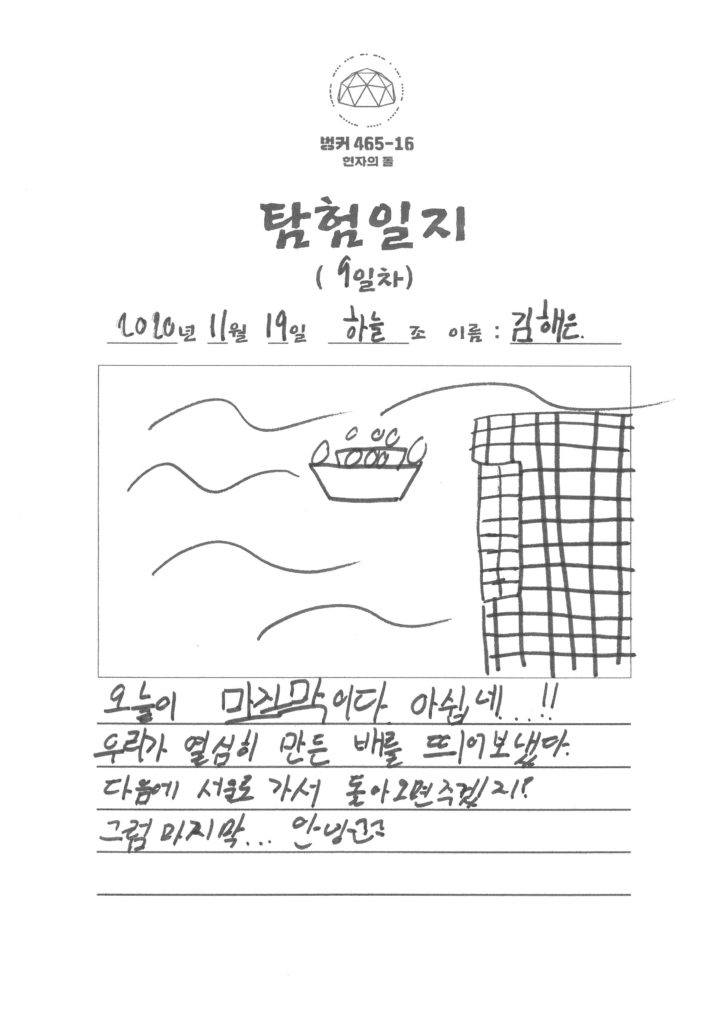 벙커 465-16
현자의 돌
탐험일지
( 9일차)
2020년 11월 19일 하늘 조 이름 : 김해은.
오늘이 마지막이다. 아쉽네...!!
우리가 열심히 만든 배를 띄어보냈다.
다음에 서울로 가서 돌아오면
그럼 마지막... 안녕